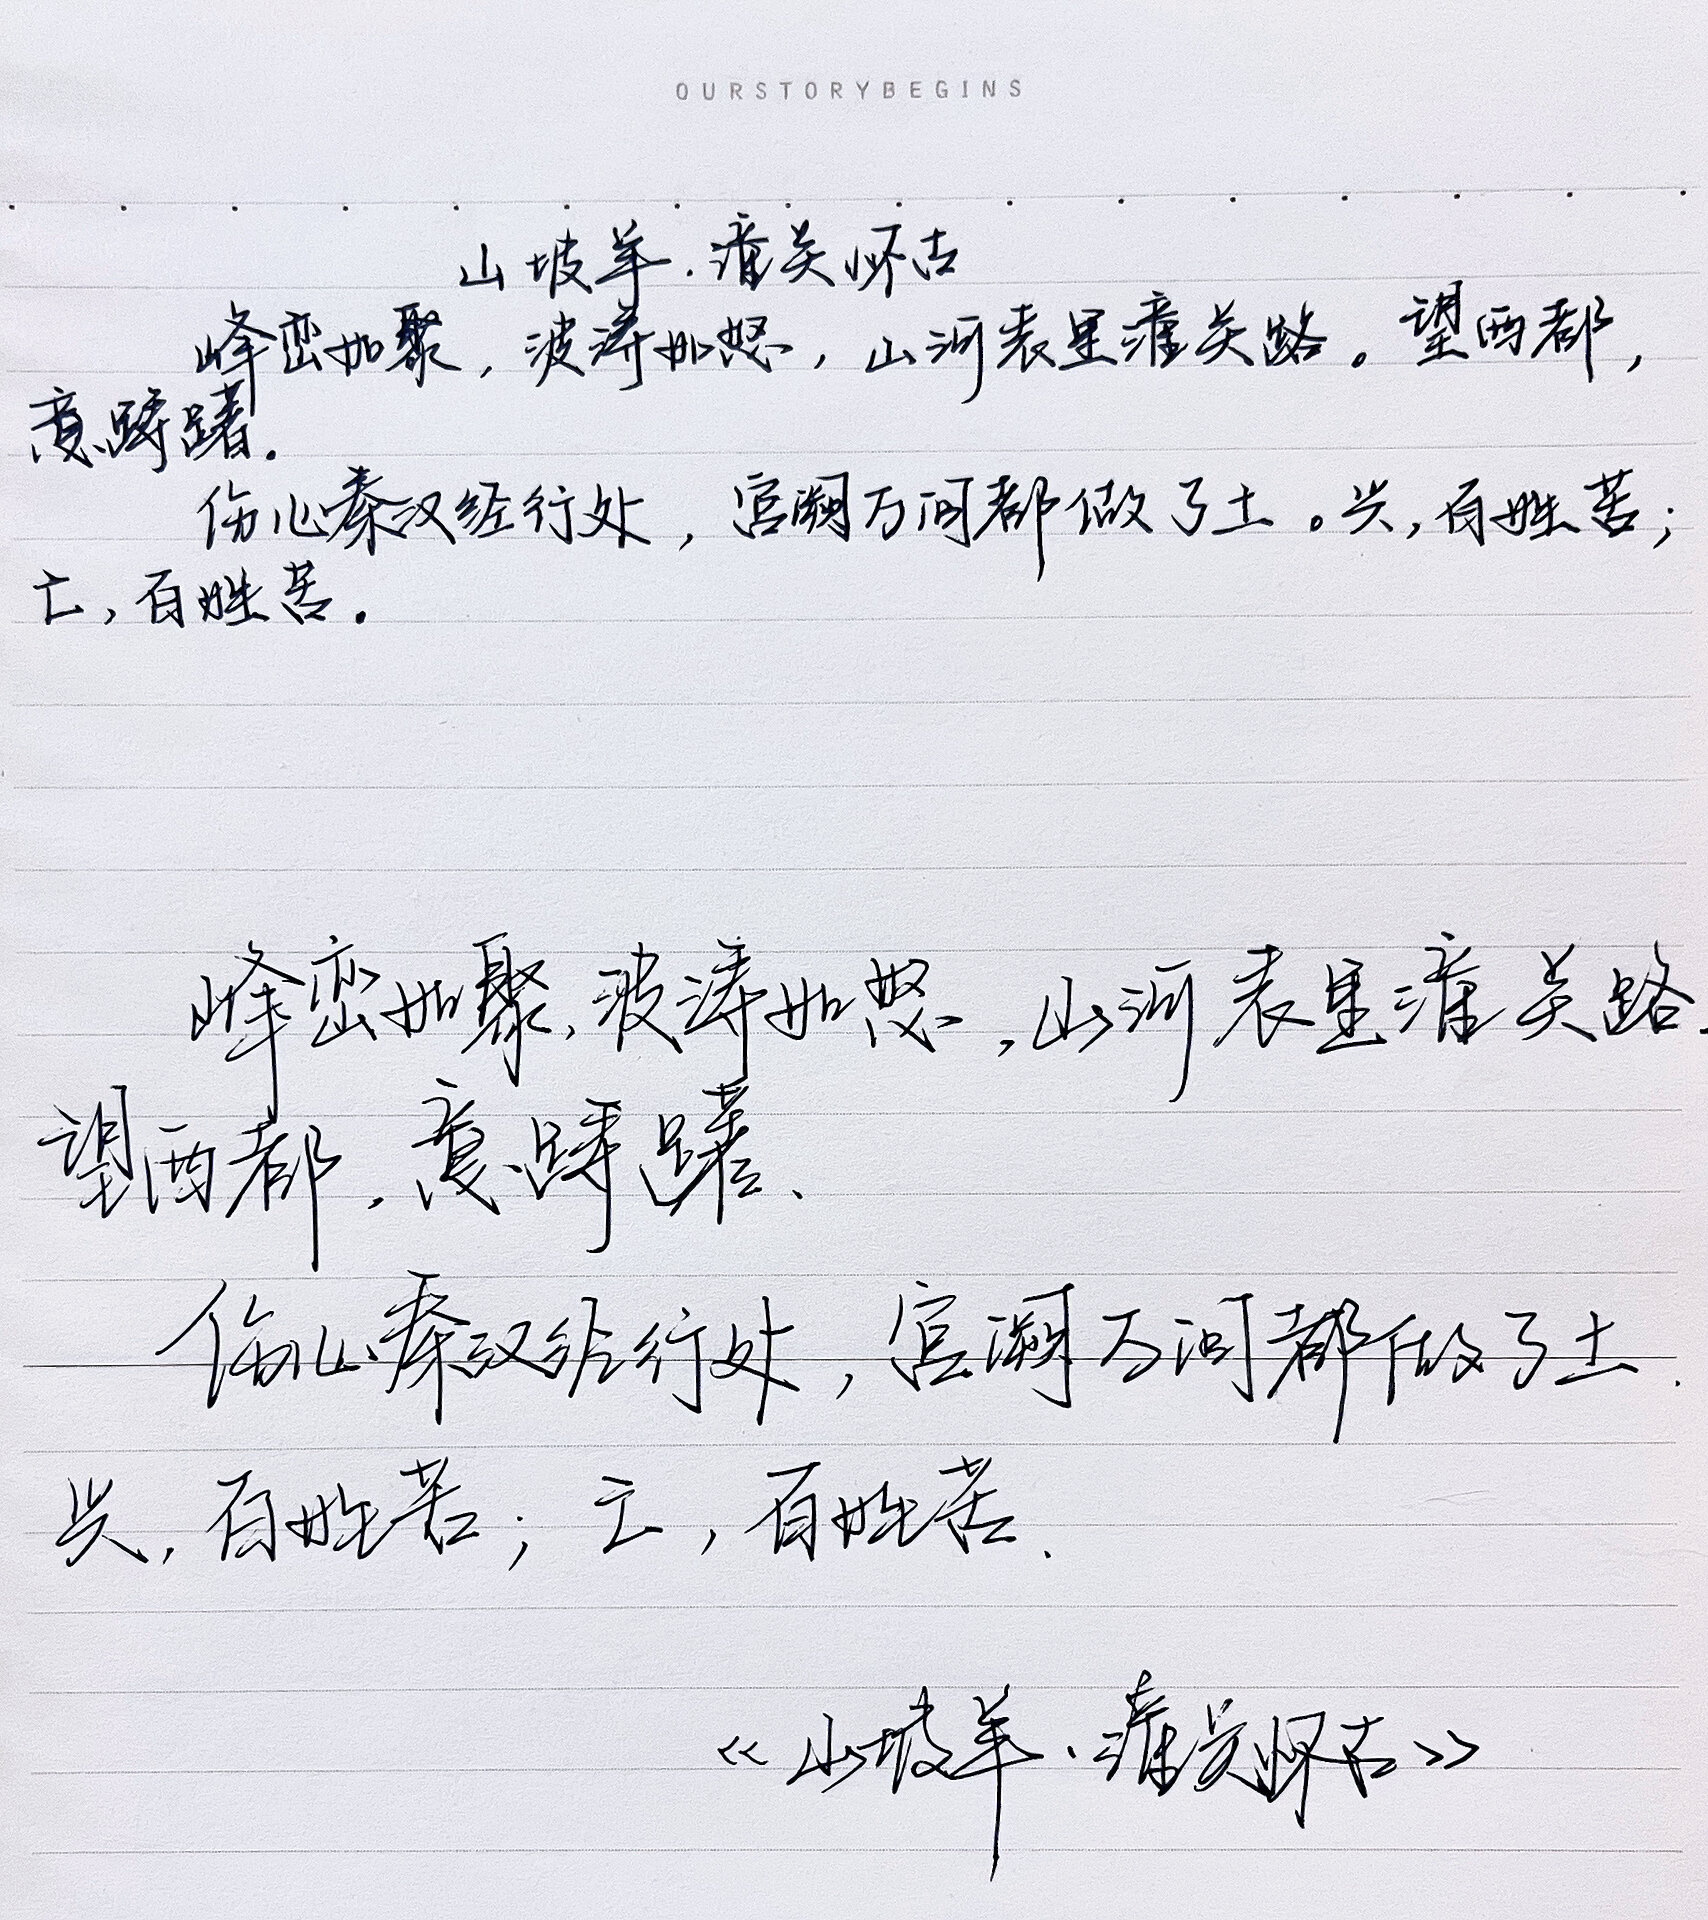 OURSTORYBEGINS
山坡羊·潼关怀古
峰峦如聚，波涛如怒，山河表里潼关路。望西都，
意踌躇。
伤心秦汉经行处，宫阙万间都做了土。兴，百姓苦；
亡，百姓苦。
峰峦如聚，波涛如怒，山河表里潼关路.
望西都，意踌躇、
伤心秦汉经行处，宫阙万间都做了土.
兴，百姓苦；亡，百姓苦.
《山坡羊·潼关怀古》